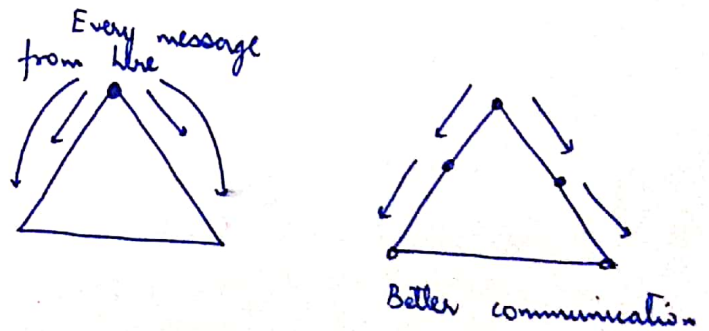 Every message
from here
Better communication